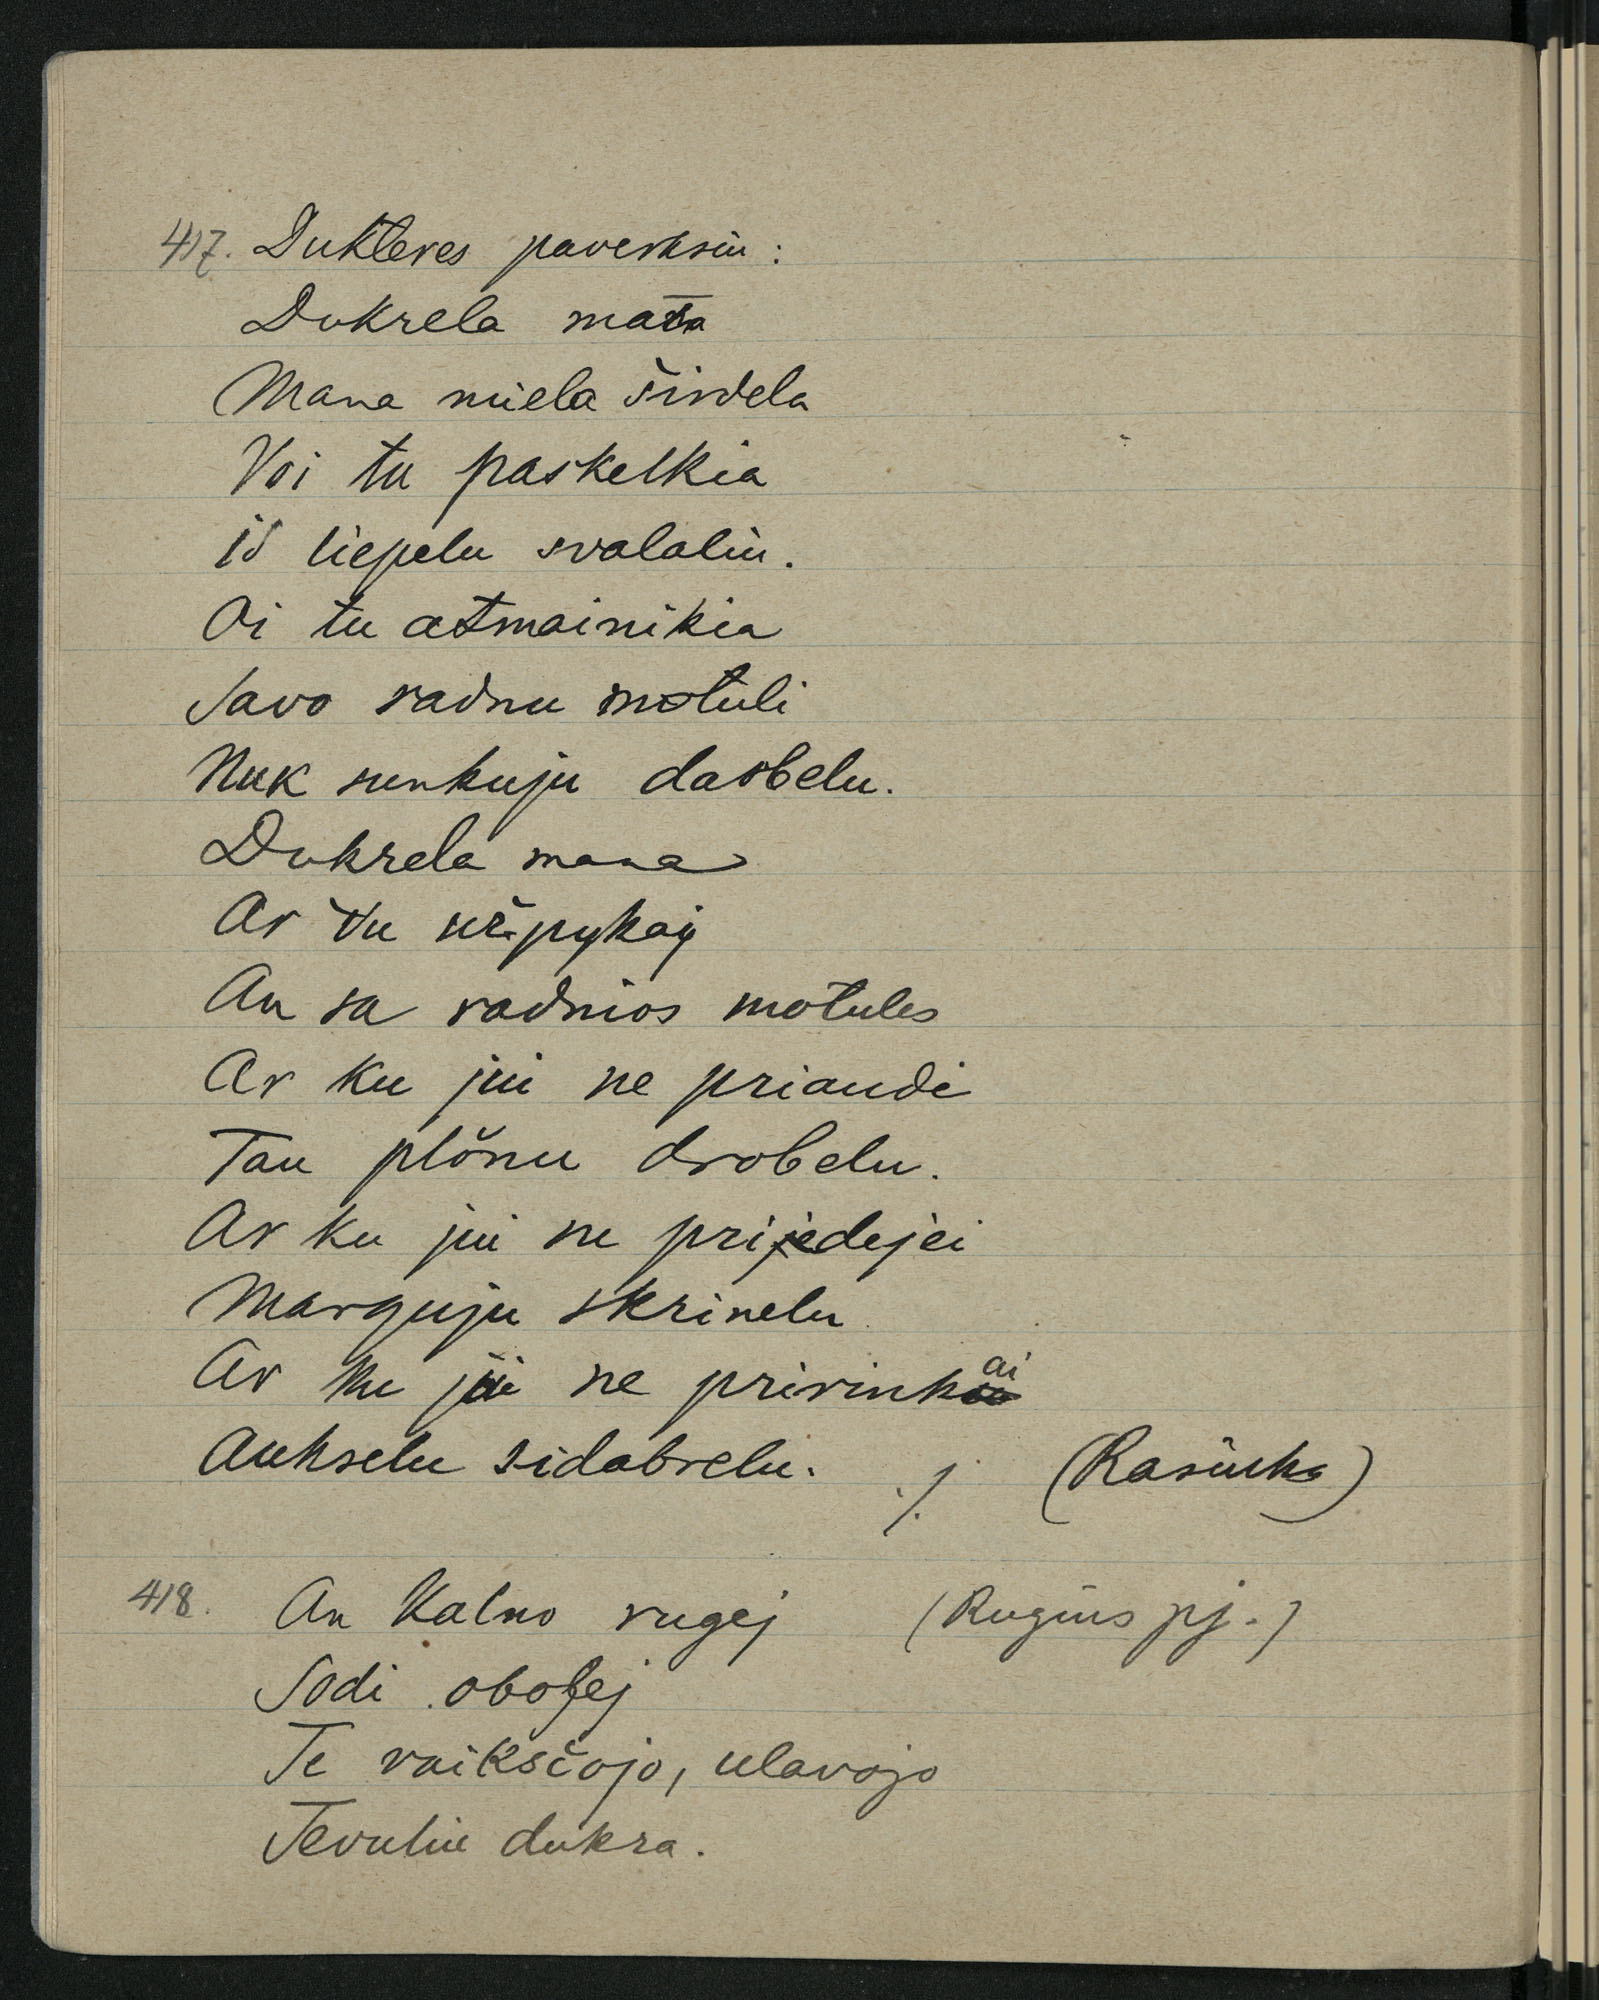 417. Dukteres paverksiu:
Dukrela mana
Mana miela širdela
Voi tu paskelkia
iš liepelu svalaliu.
Oi tu atmainikia
Savo radnu motuli
Nuk sunkuju darbelu.
Dukrela mana
Ar tu užpykaj
An sa radnios motules
Ar ku jui ne priaudi
Tau plŏnu drobelu.
Ar ku jui ne pridejei
Marguju skrinelu
Ar ku jui ne pririnkai
Aukselu sidabrelu. ./. (Rasiuka)
418. An kalno rugej (Rugius pj.)
Sodi obolej
Te vaiksčojo, ulavojo
Tevuliu dukra.